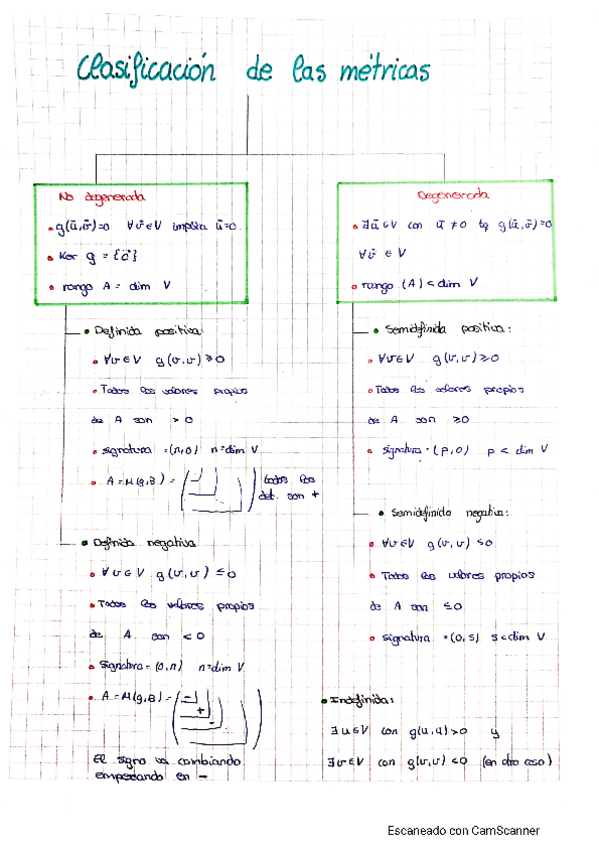 Clasificación de las métricas
No degenerada
• g(ū,v̄)=0 ∀v̄∈V implica ū=0
• Ker g = {0̄}
• rango A = dim V
• Definida positiva:
• ∀v∈V g(v,v) ≥0
• Todos los valores propios
de A son > 0
• signatura =(n,0) n=dim V
• A=M(g,B) = ( ) todos los
det. son +
• Definida negativa
• ∀v∈V g(v,v) ≤0
• Todos los valores propios
de A son < 0
• signatura = (0,n) n=dim V
• A=M(g,B) = ( - + - )
El signo va cambiando
empezando en -
Degenerada
• ∃ū∈V con ū ≠0 tq g(ū,v̄)=0
∀v̄ ∈ V
• rango (A) < dim V
• Semidefinida positiva:
• ∀v∈V g(v,v)≥0
• Todos los valores propios
de A son ≥0
• signatura = (p,0) p < dim V
• Semidefinida negativa:
• ∀v∈V g(v,v) ≤0
• Todos los valores propios
de A son ≤0
• signatura =(0,s) s<dim V
• Indefinida:
∃u∈V con g(u,u)>0 y
∃v∈V con g(v,v) <0 (en otro caso)
Escaneado con CamScanner